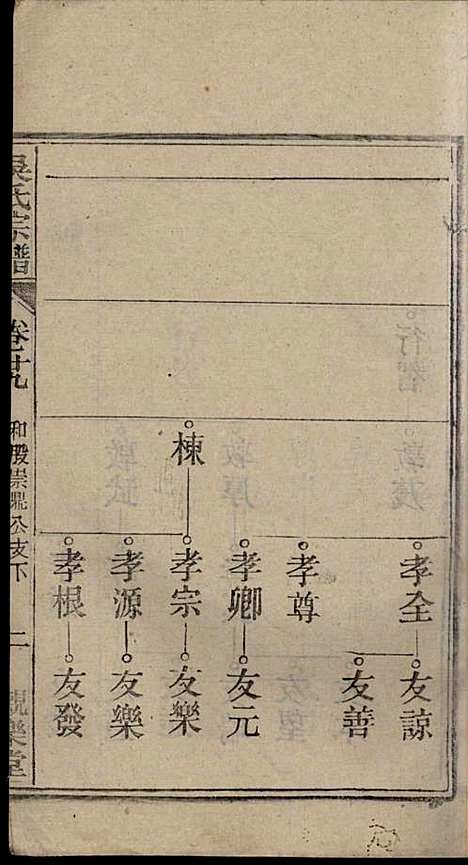 孝全 友諒
友善
孝尊
孝卿 友元
棟 孝宗 友樂
孝源 友樂
孝根 友發
吳氏宗譜 卷廿九 和股崇鼎公支下 二 親樂堂